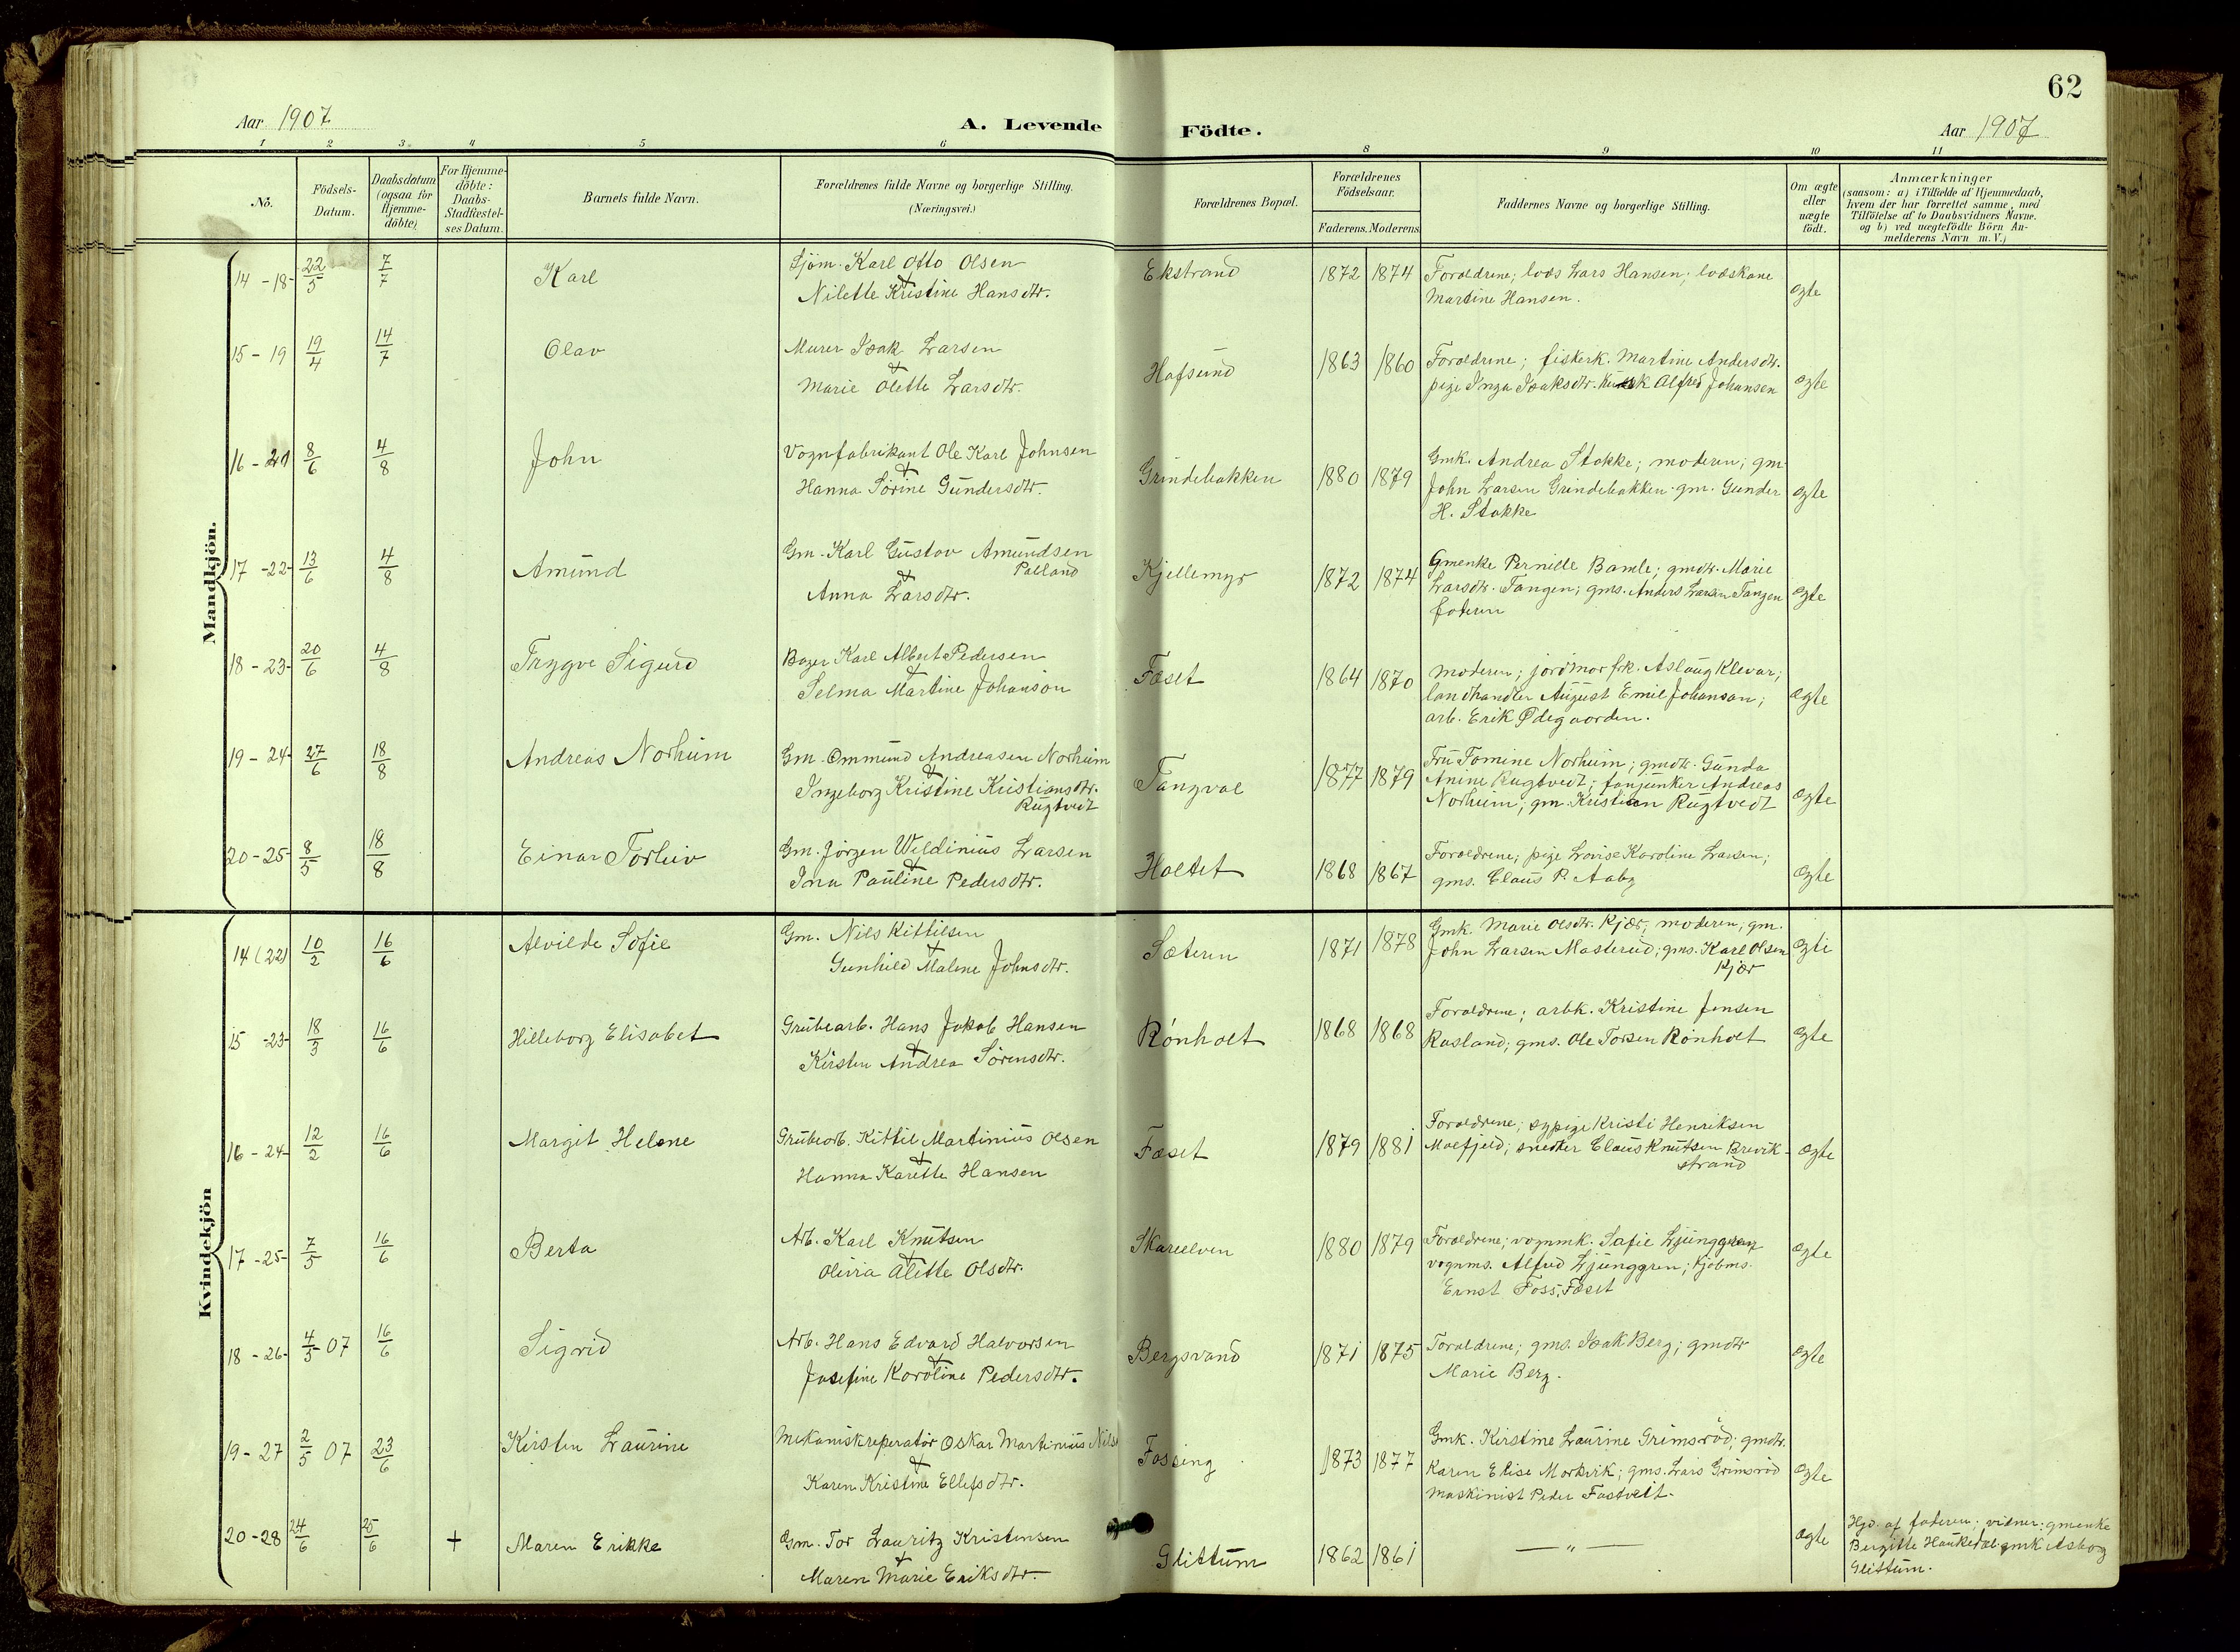 62
Aar 1907
A. Levende Födte.
Aar 1907
1 2 3 4 5 6 8 9 10 11
No.
Födsels-Datum.
Daabsdatum (ogsaa for Hjemme-döbte)
For Hjemme-döbte: Daabs-Stadfæstel-ses Datum.
Barnets fulde Navn.
Forældrenes fulde Navne og borgerlige Stilling.
(Næringsvei.)
Forældrenes Bopæl.
Forældrenes Födselsaar.
Faderens. Moderens
Faddernes Navne og borgerlige Stilling.
Om ægte eller uægte födt.
Anmærkninger
(saasom: a) i Tilfælde af Hjemmedaab,
hvem der har forrettet samme, med
Tilföielse af to Daabsvidners Navne.
og b) ved uægtefödte Börn An-
melderens Navn m. V.)
Mandkjön.
14 - 18 - 22/5 7/7 Karl
Sjøm. Karl Otto Olsen
Nilette Kristine Hansdtr.
Ekstrand 1872 1874
Forældrene; lods Lars Hansen; lodskone
Martine Hansen.
ægte
15 - 19 19/4 14/7 Olav
Murer Isak Larsen
Marie Olette Larsdtr.
Hafsund 1863 1860
Forældrene; fiskerk. Martine Andersdtr.
pige Inga Isaksdtr. Alfred Johansen
ægte
16 - 21 8/6 4/8 John
Vognfabrikant Ole Karl Johnsen
Hanna Sörine Gundersdtr.
Grindebakken 1880 1879
Gmk. Andrea Stokke; moderen; gm.
John Larsen Grindebakken. gm. Gunder
H. Stokke
ægte
17 - 22 - 13/6 4/8 Amund
Gm. Karl Gustav Amundsen
Palland
Anna Larsdtr.
Kjellemyr 1872 1874
Gmenke Pernille Bamle; gmdtr. Marie
Larsdtr. Tangen; gms. Anders Larsen Tangen
faderen
ægte
18 - 23 - 20/6 4/8 Trygve Sigurd
Bager Karl Albert Pedersen
Selma Martine Johanson
Fæset 1864 1870
Moderen; jordmor frk. Aslaug Klevar;
landhandler August Emil Johanson;
arb. Erik Ødegaarden.
ægte
19 - 24 - 27/6 18/8 Andreas Norheim
Gm. Ommund Andreasen Norheim
Ingeborg Kristine Kristiansdtr.
Rugtvedt
Tangval 1877 1879
Fru Tomine Norheim; gmdtr. Gunda
Anine Rugtvedt; fanjunker Andreas
Norheim; gm. Kristian Rugtvedt
ægte
20 - 25 - 8/5 18/8 Einar Torleiv
Gm. Jörgen Weldinius Larsen
Ina Pauline Pedersdtr.
Holtet 1868 1867
Forældrene; pige Lovise Karoline Larsen;
gms. Claus P. Aaby
ægte
Kvindekjön
14 (22) 10/2 16/6 Alvilde Sofie
Gm. Nils Kittilsen
Gunhild Malene Johnsdtr.
Sæteren 1871 1878
Gmk. Marie Olsdtr. Kjær; moderen; gm.
John Larsen Masterud; gms. Karl Olsen
Kjær
ægte
15 - 23 - 18/3 16/6 Hilleborg Elisabet
Grubearb. Hans Jakob Hansen
Kirsten Andrea Sörensdtr.
Rønholt 1868 1868
Forældrene; arbk. Kristine Jensen
Rosland; gms. Ole Torsen Rønholt
ægte
16 - 24 - 12/2 16/6 Margit Helene
Grubearb. Kittil Martinius Olsen
Hanna Karette Hansen
Fæset 1879 1881
Forældrene; sypige Kristi Henriksen
Molfjeld; snedker Claus Knutsen Brevik-
strand
ægte
17 - 25 - 7/5 16/6 Berta
Arb. Karl Knutsen
Olivia Alette Olsdtr.
Skareelven 1880 1879
Forældrene; vognmk. Sofie Ljunggren
vognms. Alfred Ljunggren; kjøbms.
Ernst Foss, Fæset
ægte
18 - 26 - 4/5 07 16/6 Sigrid
Arb. Hans Edvard Halvorsen
Josefine Karoline Pedersdtr.
Bergsvand 1871 1875
Forældrene; gms. Isak Berg; gmdtr
Marie Berg.
ægte
19 - 27 2/5 07 23/6 Kirsten Laurine
Mekaniskreperatör Oskar Martinius Nils
Karen Kristine Ellefsdtr.
Fossing 1873 1877
Gmk. Kirstine Laurine Grimsröd; gmdtr.
Karen Elise Morkvik; gms. Lars Grimsröd
maskinist Peder Fostveit.
ægte
20 - 28 24/6 25/6 + Maren Erikke
Gm. Tor Lauritz Kristensen
Maren Marie Eriksdtr.
Glittum 1862 1861
— " —
ægte
Hjd. af faderen; vidner: gmenke
Bergitte Haukedal gmk. Asborg
Glittum.